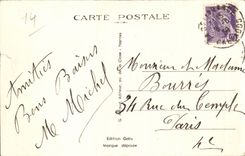 14
CARTE POSTALE
Amitiés
Bons Baisers
M Michel
Monsieur et Madame
Bourrés
34 Rue du Temple
Paris
4e
Edition Gaby
Marque déposée